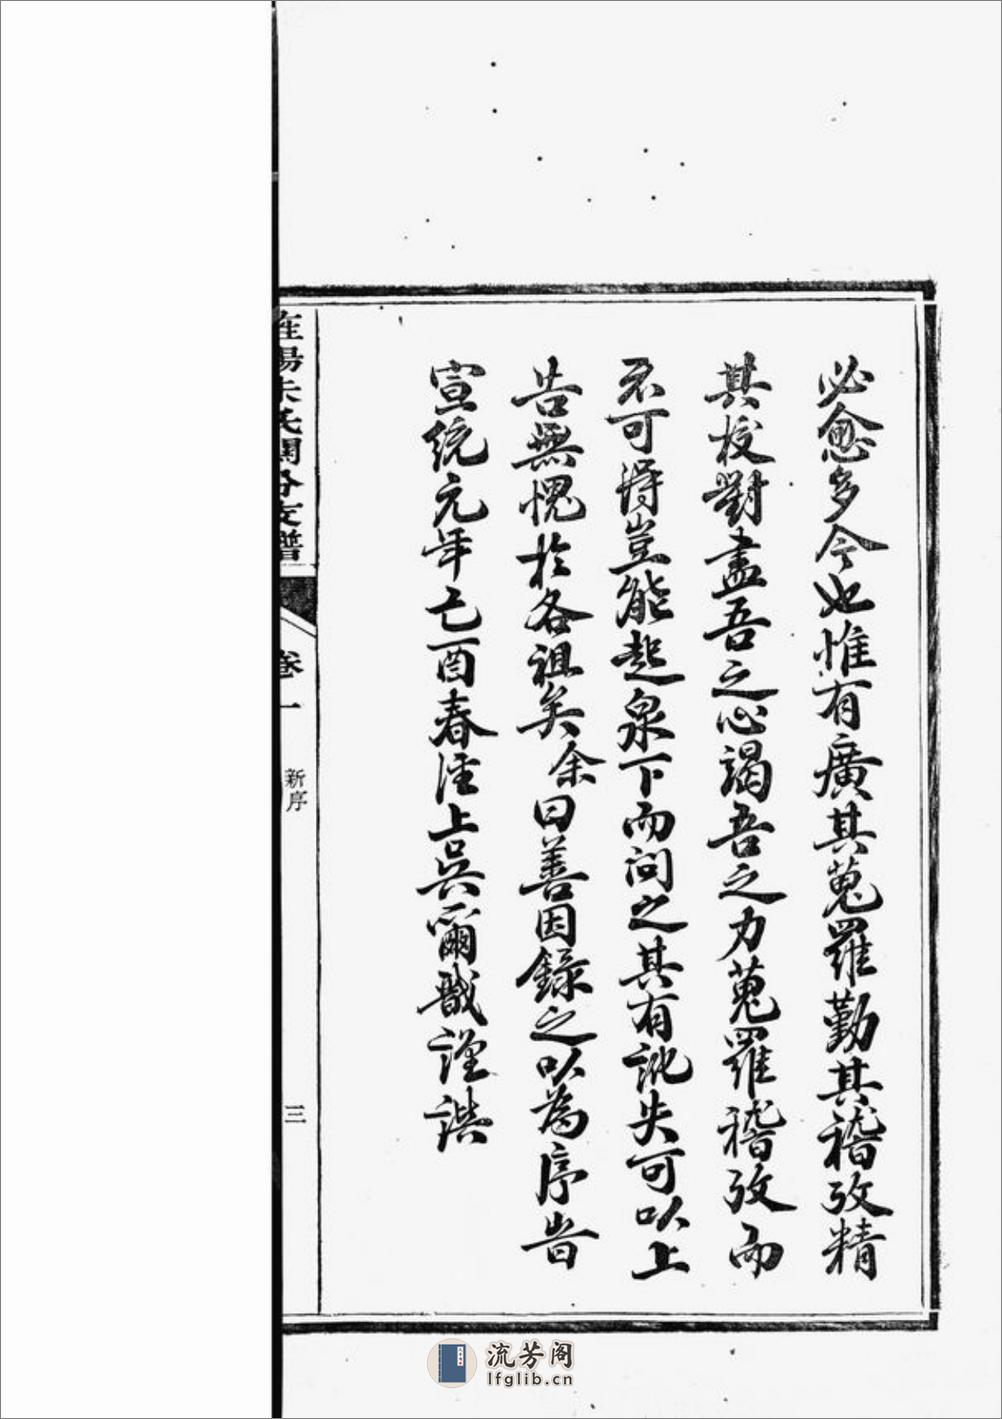 必愈多今也惟有廣其蒐羅勤其稽攷精
其校對盡吾之心竭吾之力蒐羅稽攷而
不可得豈能起泉下而問之其有訛失可以上
告無愧於各祖矣余曰善因錄之以為序旹
宣統元年己酉春淮上吳爾戩謹譔
朱氏閣分支譜
卷一
新序
三
流芳阁
lfglib.cn